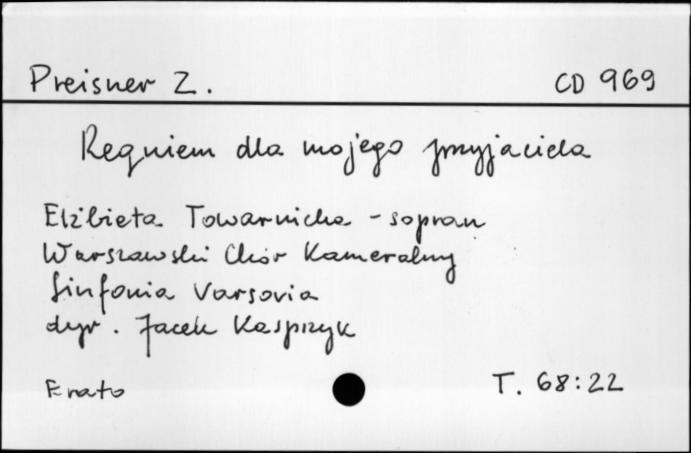 Preisner Z.
CD 969
Requiem dla mojego przyjaciela
Elżbieta Towarnicka - sopran
Warszawski Chór Kameralny
Sinfonia Varsovia
dyr. Jacek Kasprzyk
Erato
T. 68:22